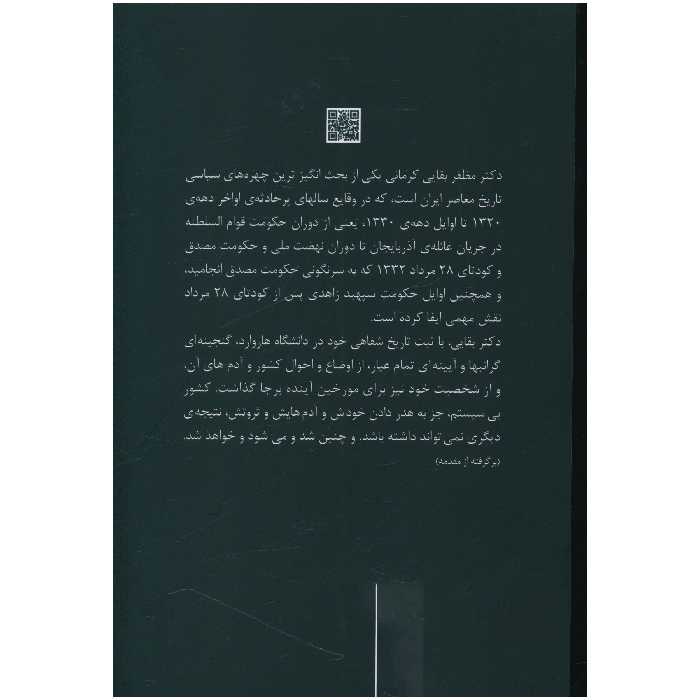 دکتر مظفر بقایی کرمانی یکی از بحث انگیز ترین چهره‌های سیاسی
تاریخ معاصر ایران است، که در وقایع سالهای پرحادثه‌ی اواخر دهه‌ی
۱۳۲۰ تا اوایل دهه‌ی ۱۳۳۰، یعنی از دوران حکومت قوام السلطنه
در جریان غائله‌ی آذربایجان تا دوران نهضت ملی و حکومت مصدق
و کودتای ۲۸ مرداد ۱۳۳۲ که به سرنگونی حکومت مصدق انجامید،
و همچنین اوایل حکومت سپهبد زاهدی پس از کودتای ۲۸ مرداد
نقش مهمی ایفا کرده است.
دکتر بقایی، با ثبت تاریخ شفاهی خود در دانشگاه هاروارد، گنجینه‌ای
گرانبها و آیینه‌ای تمام عیار، از اوضاع و احوال کشور و آدم های آن،
و از شخصیت خود نیز برای مورخین آینده برجا گذاشت. کشور
بی سیستم، جز به هدر دادن خودش و آدم‌هایش و ثروتش، نتیجه‌ی
دیگری نمی تواند داشته باشد. و چنین شد و می شود و خواهد شد.
(برگرفته از مقدمه)